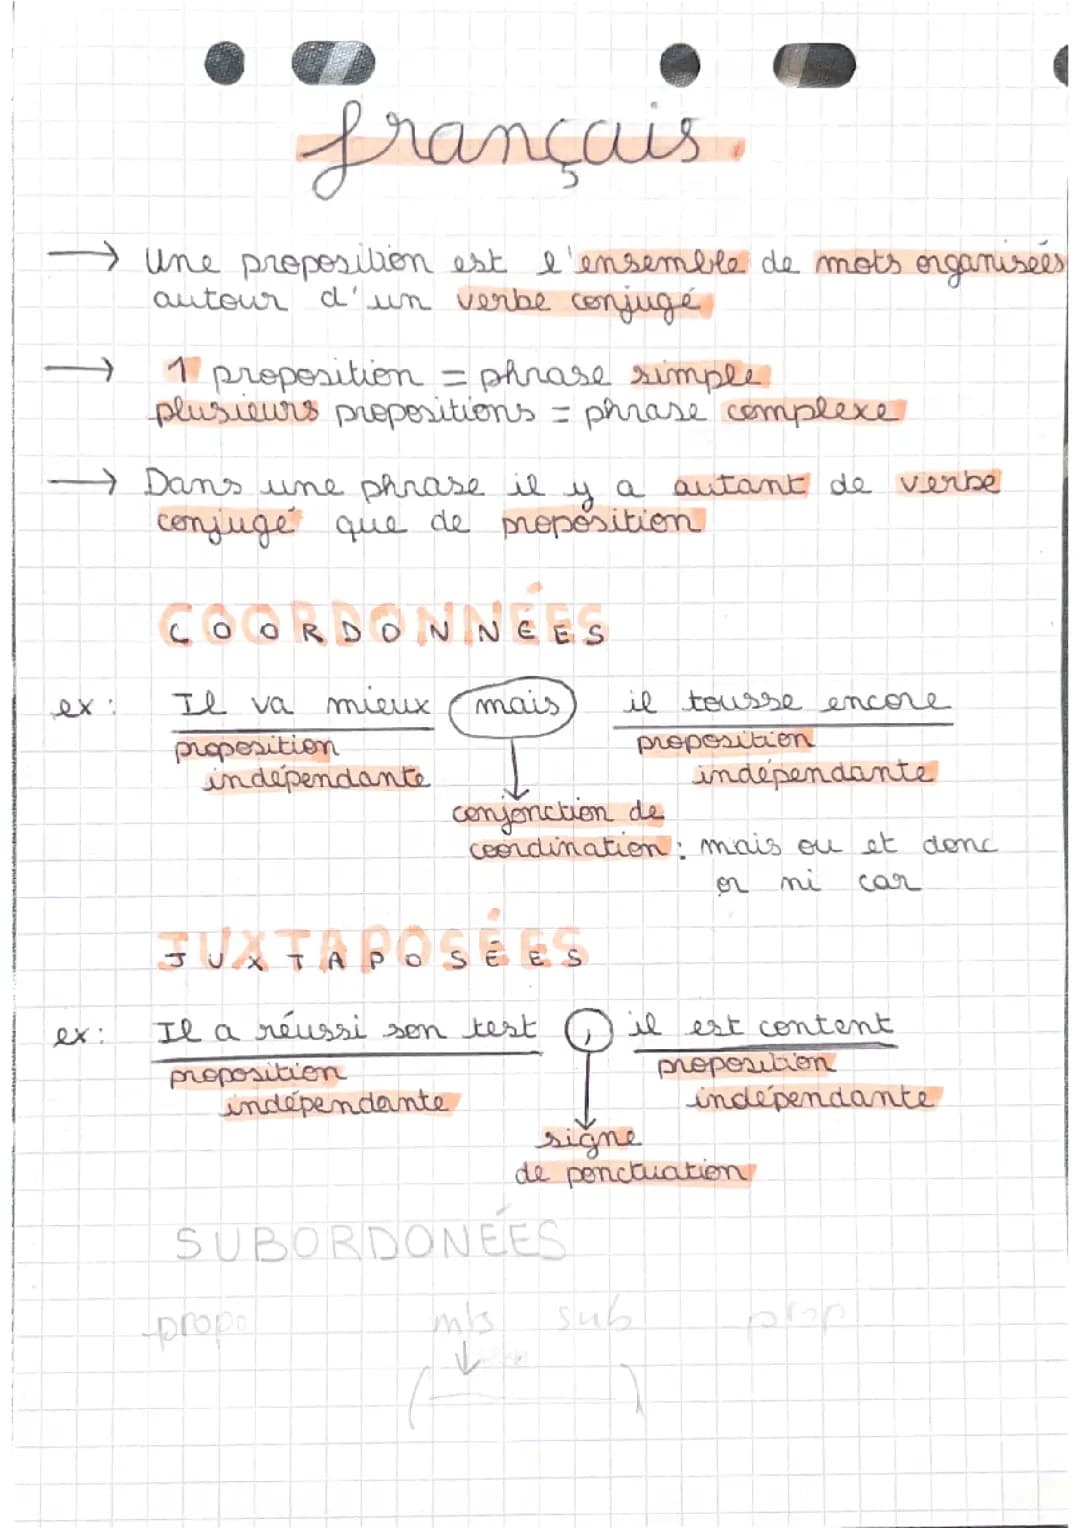 français.
→ Une proposition est l'ensemble de mots organisées
autour d'un verbe conjugé
→ 1 proposition = phrase simple
plusieurs propositions = phrase complexe
→ Dans une phrase il y a autant de verbe
conjugé que de proposition
COORDONNÉES
ex: Il va mieux mais il tousse encore
proposition proposition
indépendante indépendante
conjonction de
coordination : mais ou et donc
or ni car
JUXTAPOSÉES
ex: Il a réussi son test , il est content
proposition proposition
indépendante indépendante
signe
de ponctuation
SUBORDONÉES
propo mts sub prop